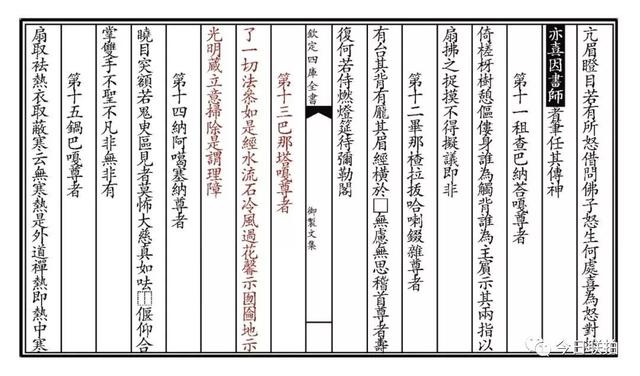 亢眉瞪目若有所怒借問佛子怒生何處喜為怒對
亦喜因書師者筆任其傳神
第十一租查巴納荅嘎尊者
倚槎枒樹憩傴僂身誰為觸背誰為主賓示其兩指以
扇拂之捉摸不得擬議即非
第十二畢那楂拉拔哈喇錣雜尊者
有台其背有龐其眉經橫於□無慮無思稽首尊者壽
復何若侍燃燈筵待彌勒閣
欽定四庫全書
御製文集
第十三巴那塔嘎尊者
了一切法叅如是經水流石冷風過花馨示囫圇地示
光明蔵立意掃除是謂理障
第十四納阿噶塞納尊者
曉目突額若鬼臾區見者莫怖大慈真如呿偃仰合
掌雙手不聖不凡非無非有
第十五鍋巴嘎尊者
扇取袪熱衣取蔽寒云無寒熱是外道禪熱即熱中寒
今日联拍